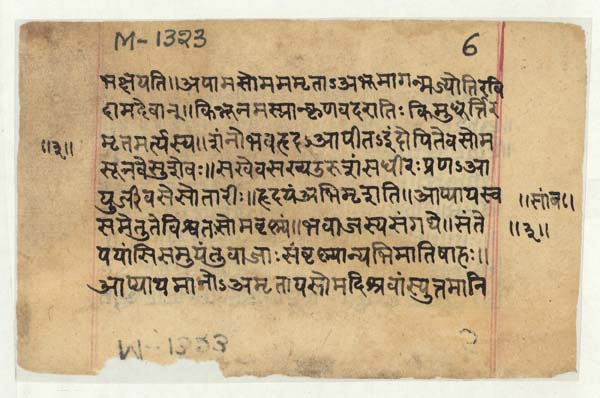 M-1323
6
भक्षयति॥अपामसोमममृताऽअभूमागन्मज्योतिरवि
दामदेवान्॥किन्नूनमस्मान्कृणवदरातिःकिमुधूर्तिर
मृतमर्त्यस्य॥शंनोभवहृदऽआपीतऽइंदोपितेवसोम
॥३॥
सूनवेसुशेवः॥सखेवसख्यउरुशंसधीरःप्रणऽआ
युर्जीवसेसोतारीः॥हृदयंअभिमृशति॥आप्यायस्व
समेतुतेविश्वतःसोमवृष्ण्यं॥भवावाजस्यसंगथे॥संते
॥३॥
पयांसिसमुयंतुवाजाःसंवृष्ण्यान्यभिमातिषाहः॥
आप्यायमानोऽअमृतायसोमदिविश्रवांस्युत्तमानि
M-1323